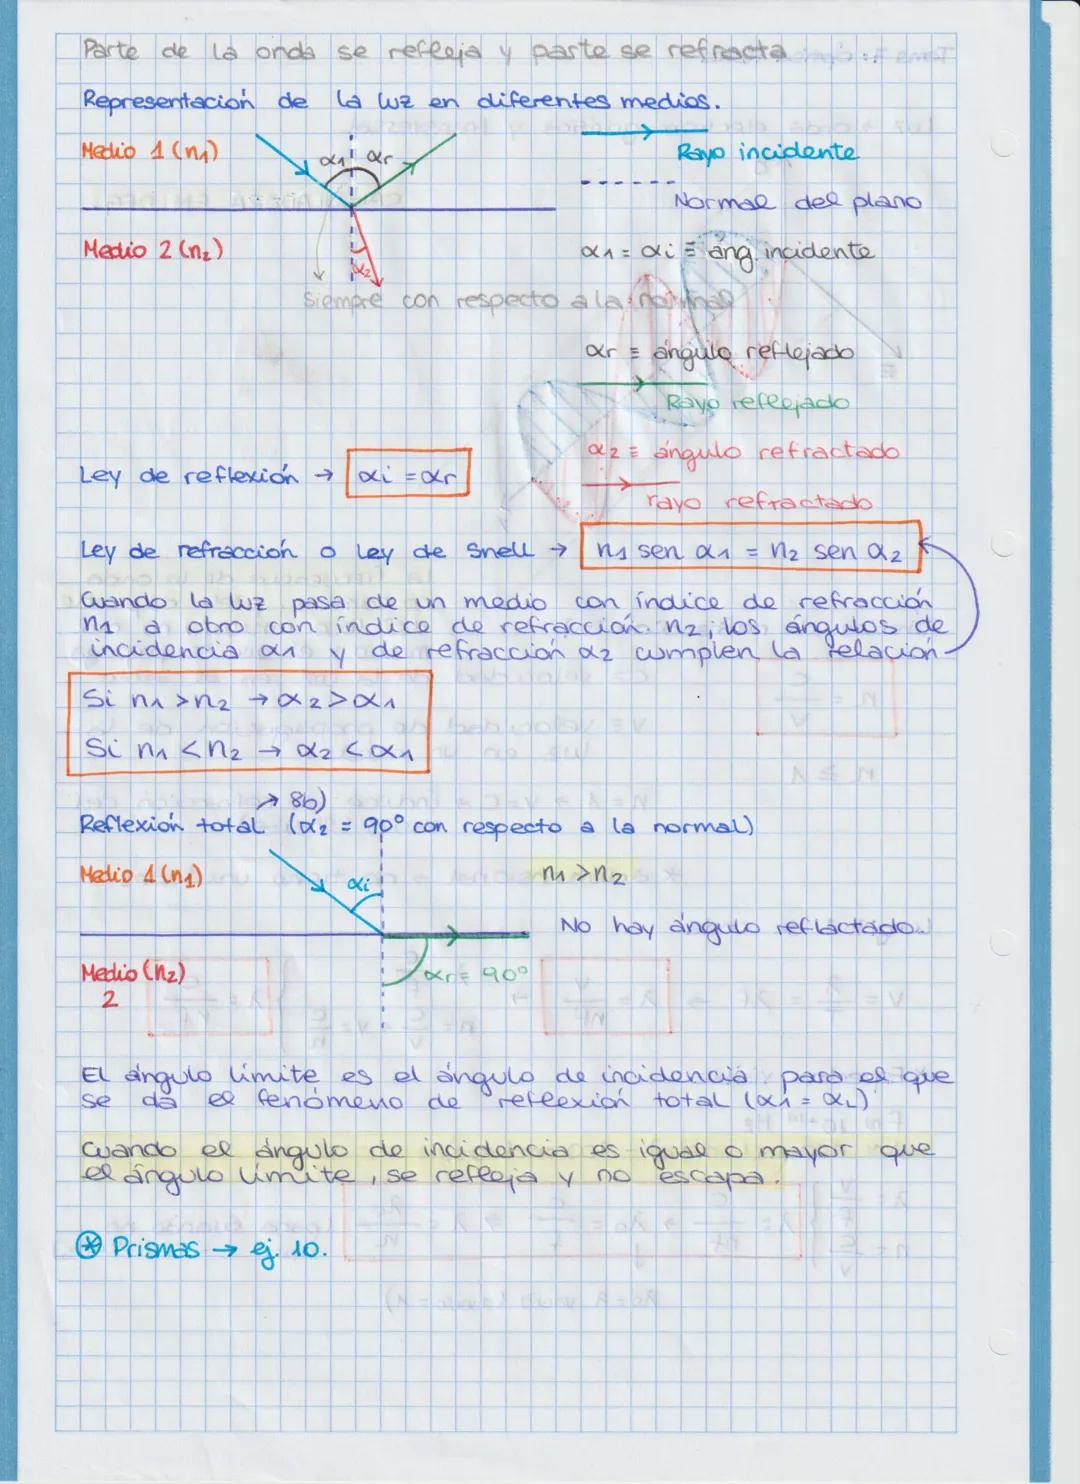 Parte de la onda se refleja y parte se refracta
Representación de la luz en diferentes medios.
Medio 1 (n₁)
α₁ αr
Rayo incidente
Normal del plano
Medio 2 (n₂)
α₂
α₁ = αi ≡ áng. incidente
Siempre con respecto a la normal
αr ≡ ángulo reflejado
Rayo reflejado
α₂ ≡ ángulo refractado
rayo refractado
Ley de reflexión → αi = αr
Ley de refracción o Ley de Snell → n₁ sen α₁ = n₂ sen α₂
Cuando la luz pasa de un medio con índice de refracción
n₁ a otro con índice de refracción n₂, los ángulos de
incidencia α₁ y de refracción α₂ cumplen la relación
Si n₁ > n₂ → α₂ > α₁
Si n₁ < n₂ → α₂ < α₁
→ 8b)
Reflexión total (α₂ = 90° con respecto a la normal)
Medio 1 (n₁)
αi
n₁ > n₂
No hay ángulo reflactado.
Medio (n₂)
2
αr = 90°
El ángulo límite es el ángulo de incidencia para el que
se da el fenómeno de reflexión total (α₁ = αL)
Cuando el ángulo de incidencia es igual o mayor que
el ángulo límite, se refleja y no escapa.
* Prismas → ej. 10.